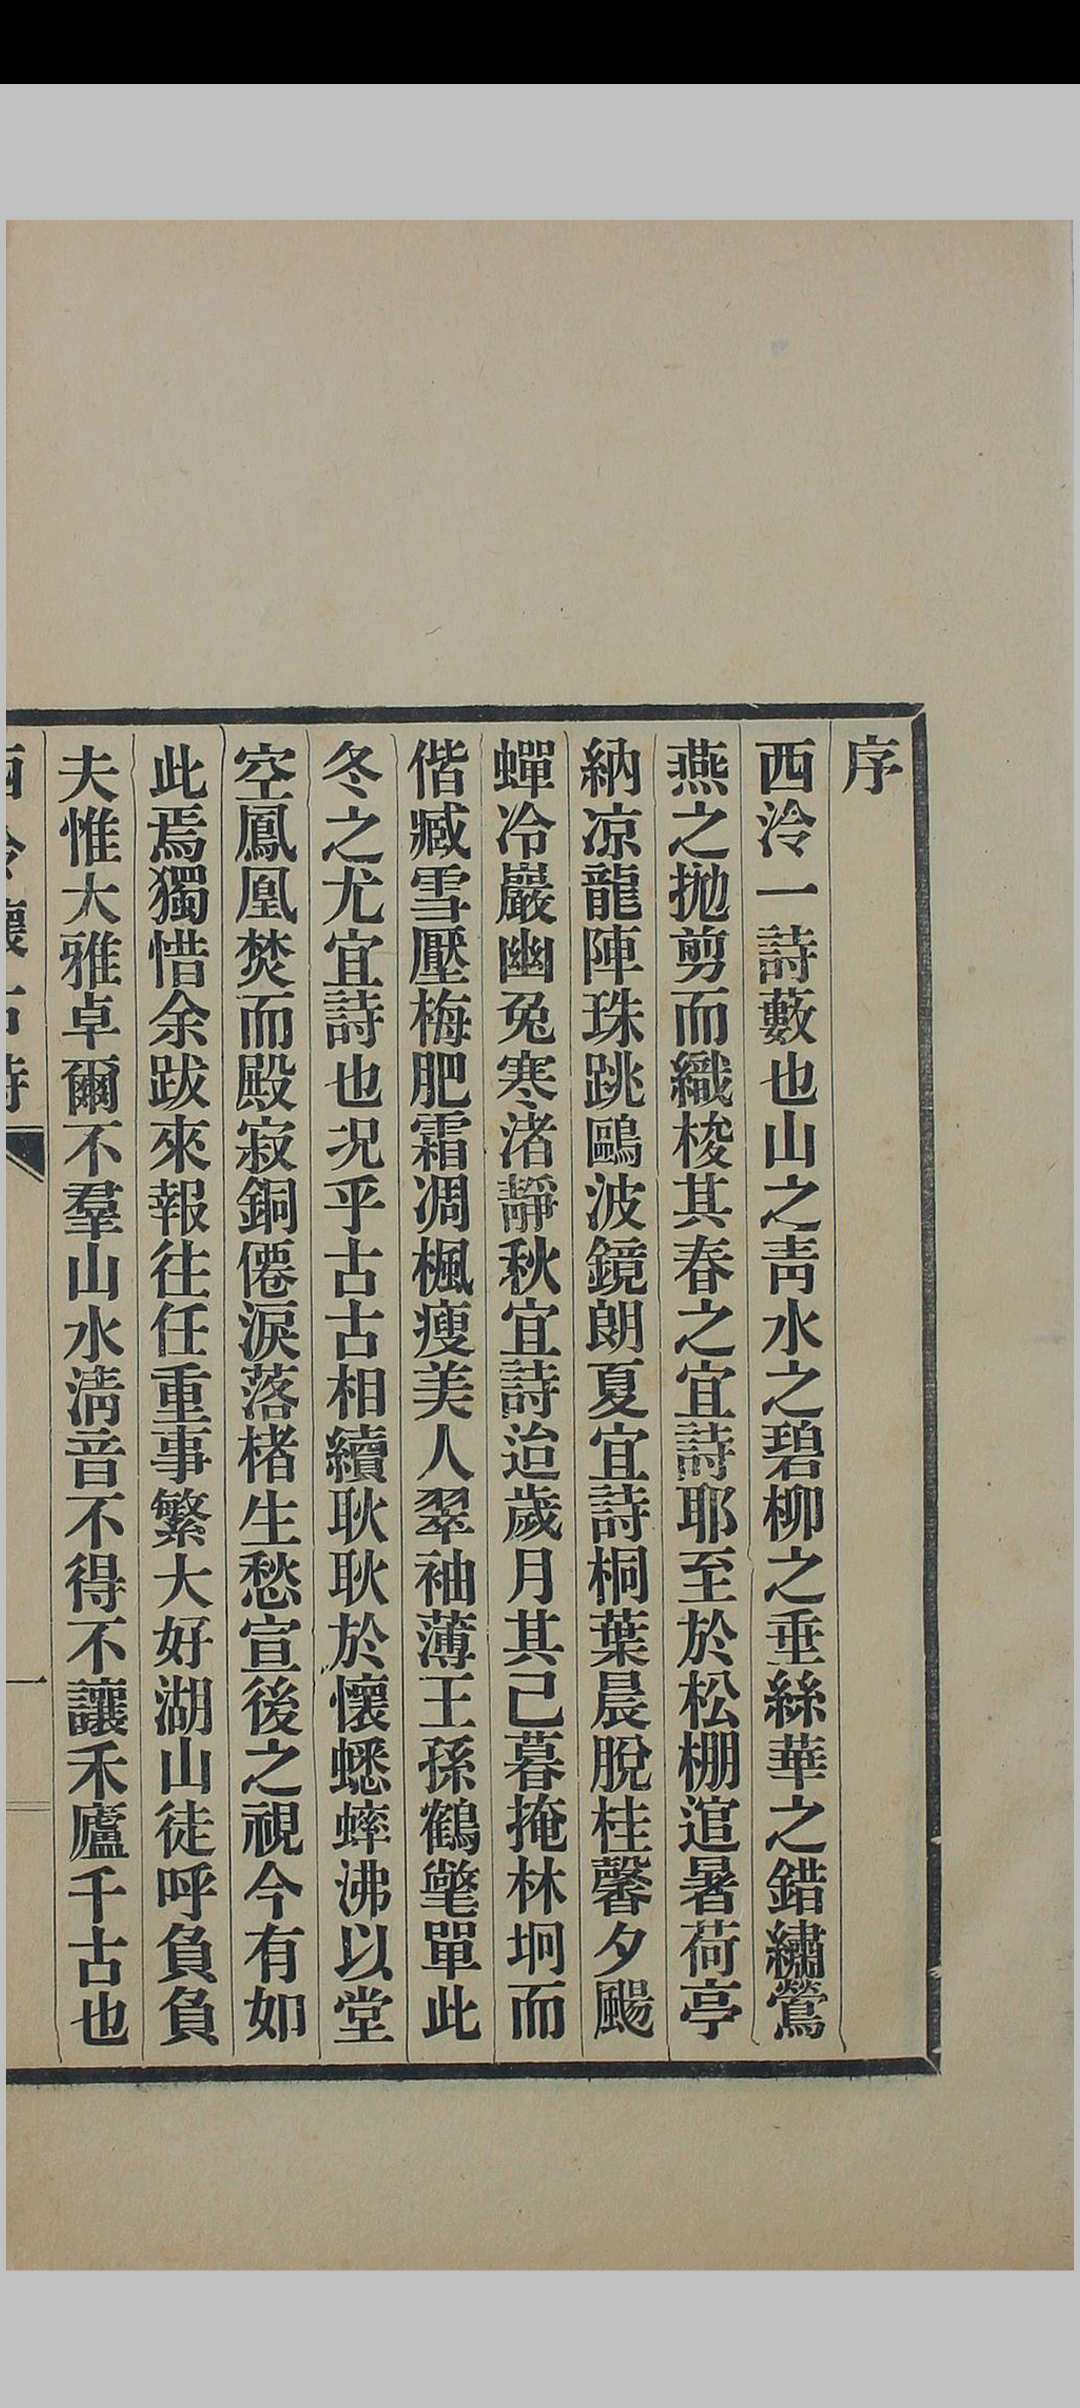 序
西泠一詩藪也山之靑水之碧柳之垂絲華之錯繡鶯
燕之拋剪而織梭其春之宜詩耶至於松棚逭暑荷亭
納凉龍陣珠跳鷗波鏡朗夏宜詩桐葉晨脫桂馨夕颺
蟬冷巖幽兔寒渚靜秋宜詩迨歲月其已暮掩林坰而
偕臧雪壓梅肥霜凋楓瘦美人翠袖薄王孫鶴氅單此
冬之尤宜詩也况乎古古相續耿耿於懷蟋蟀沸以堂
空鳳凰焚而殿寂銅僊淚落楮生愁宣後之視今有如
此焉獨惜余跋來報往任重事繁大好湖山徒呼負負
夫惟大雅卓爾不羣山水淸音不得不讓禾廬千古也
西泠懷古詩
一